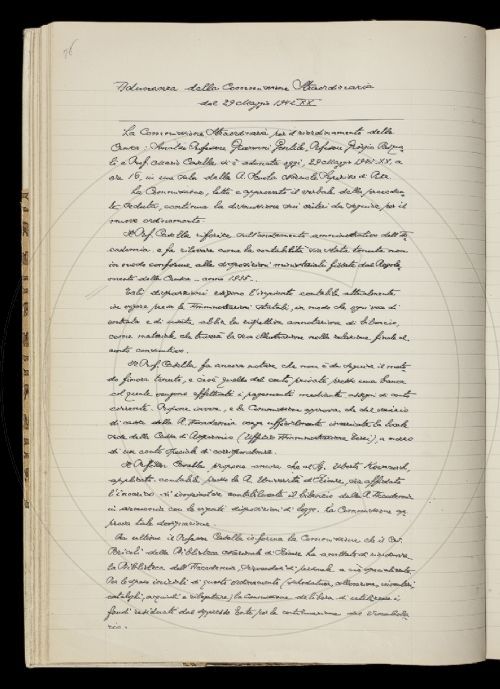 76
Adunanza della Commissione Straordinaria
del 29 Maggio 1942 XX
La Commissione Straordinaria per il riordinamento della
Crusca: Senatore Professore Giovanni Gentile, Professore Giorgio Pasqua-
li e Prof. Mario Casella, si è adunata oggi, 29 Maggio 1942-XX, a
ore 16, in una sala della R. Scuola Normale Superiore di Pisa.
La Commissione, letto e approvato il verbale della preceden-
te seduta, continua la discussione sui criteri da seguire, per il
nuovo ordinamento.
Il Prof. Casella riferisce sull'andamento amministrativo dell'Ac-
cademia e fa rilevare come la contabilità sia stata tenuta non
in modo conforme alle disposizioni ministeriali fissate dal Regola-
mento della Crusca - anno
Tali disposizioni esigono l'impianto contabile attualmente
in vigore presso le Amministrazioni Statali, in modo che ogni voce di
entrata e di uscita abbia la rispettiva annotazione di bilancio,
come materiale che troverà la sua illustrazione nella relazione finale al
conto consuntivo.
Il Prof. Casella fa ancora notare che non è da seguire il meto-
do finora tenuto, e cioè quello del conto privato presso una banca
col quale vengono effettuati i pagamenti mediante assegni di conto
corrente. Propone invece, e la Commissione approva, che del servizio
di cassa della R. Accademia venga ufficialmente incaricata la locale
sede della Cassa di Risparmio (Ufficio Amministrazione Enti), a mezzo
di un conto speciale di corrispondenza.
Il Professor Casella propone ancora che al Sig. Uberto
applicato contabile presso la R. Università di Firenze, sia affidato
l'incarico di contabilmente il bilancio della R. Accademia
in armonia con le vigenti disposizioni di legge. La Commissione ap-
prova tale designazione.
Per ultimo il Professore Casella informa la Commissione che il
della Biblioteca Nazionale di Firenze ha accettato di riordinare
la Biblioteca dell'Accademia, di personale a ciò specializzato.
Per le spese iniziali di questo ordinamento (schedatura, collocazione,
cataloghi, acquisti e rilegature) la Commissione delibera di utilizzare i
fondi residuati dal soppresso Ente per la continuazione del Vocabola-
rio.